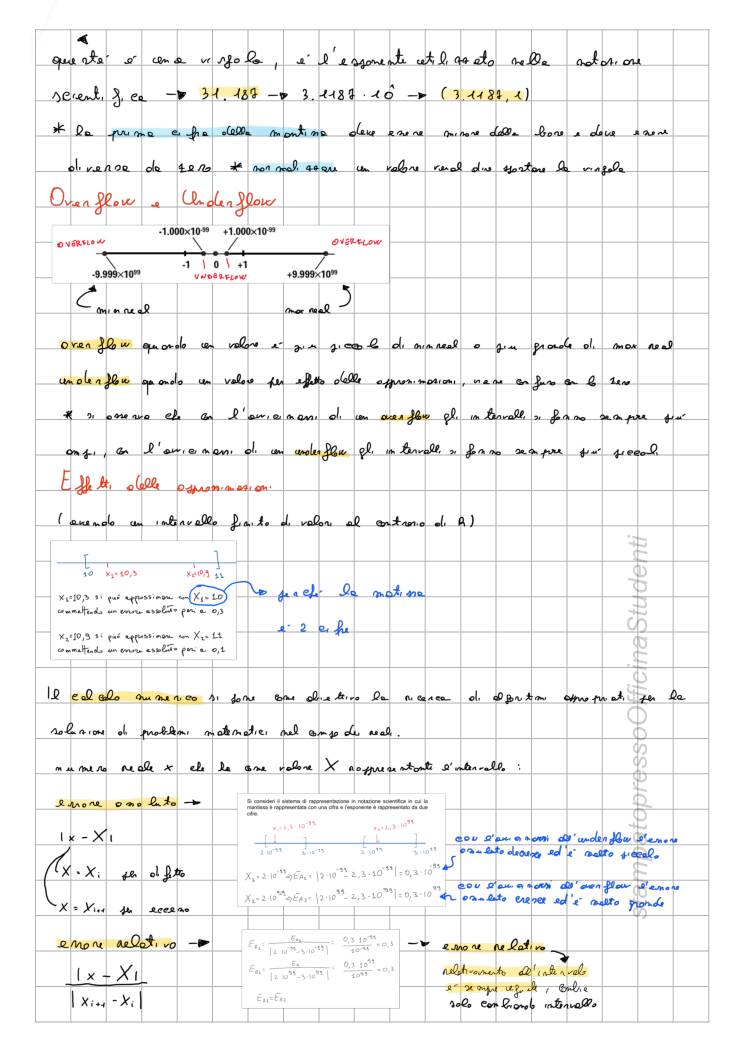 questa è come virgola, è l'esponente utilizzato nella notazione
scientifica → 31.187 → 3.1187 · 10^ → (3.1187, 1)
* la prima cifra della mantissa deve essere minore della base e deve essere
diversa da zero * normalizzare un valore vuol dire spostare la virgola
Overflow e Underflow
-1.000×10⁻⁹⁹ +1.000×10⁻⁹⁹
OVERFLOW OVERFLOW
-1 0 +1
-9.999×10⁹⁹ UNDERFLOW +9.999×10⁹⁹
minreal maxreal
overflow quando un valore è più piccolo di minreal o più grande di max real
underflow quando un valore per effetto delle approssimazioni, viene confuso con lo zero
* si osserva che con l'avvicinarsi di un overflow gli intervalli si fanno sempre più
ampi, con l'avvicinarsi di un underflow gli intervalli si fanno sempre più piccoli
Effetti delle approssimazioni
(avendo un intervallo finito di valori al contrario di R)
10 x₁=10,3 x₂=10,9 11
x₁=10,3 si può approssimare con X₁=10
commettendo un errore assoluto pari a 0,3
perché la mantissa
è 2 cifre
x₂=10,9 si può approssimare con X₂=11
commettendo un errore assoluto pari a 0,1
Il calcolo numerico si pone come obiettivo la ricerca di algoritmi appropriati per la
soluzione di problemi matematici nel campo dei reali.
numero reale x che ha come valore X rappresentante l'intervallo :
errore assoluto →
Si consideri il sistema di rappresentazione in notazione scientifica in cui la
mantissa è rappresentata con una cifra e l'esponente è rappresentato da due
cifre.
x₁=2,3·10⁻⁹⁹ x₂=2,3·10⁹⁹
2·10⁻⁹⁹ 3·10⁻⁹⁹ 2·10⁹⁹ 3·10⁹⁹
|x - X|
X = Xi per difetto
X = Xi+1 per eccesso
X₁=2·10⁻⁹⁹ ⇒ EA₁= |2·10⁻⁹⁹ - 2,3·10⁻⁹⁹| = 0,3·10⁻⁹⁹
X₂=2·10⁹⁹ ⇒ EA₂= |2·10⁹⁹ - 2,3·10⁹⁹| = 0,3·10⁹⁹
con l'avvicinarsi all'underflow l'errore
assoluto decresce ed è molto piccolo
con l'avvicinarsi all'overflow l'errore
assoluto cresce ed è molto grande
errore relativo →
|x - X|
|Xi+1 - Xi|
→ errore relativo
relativamente all'intervallo
è sempre uguale, cambia
solo cambiando intervallo
stampatopressoOfficinaStudenti